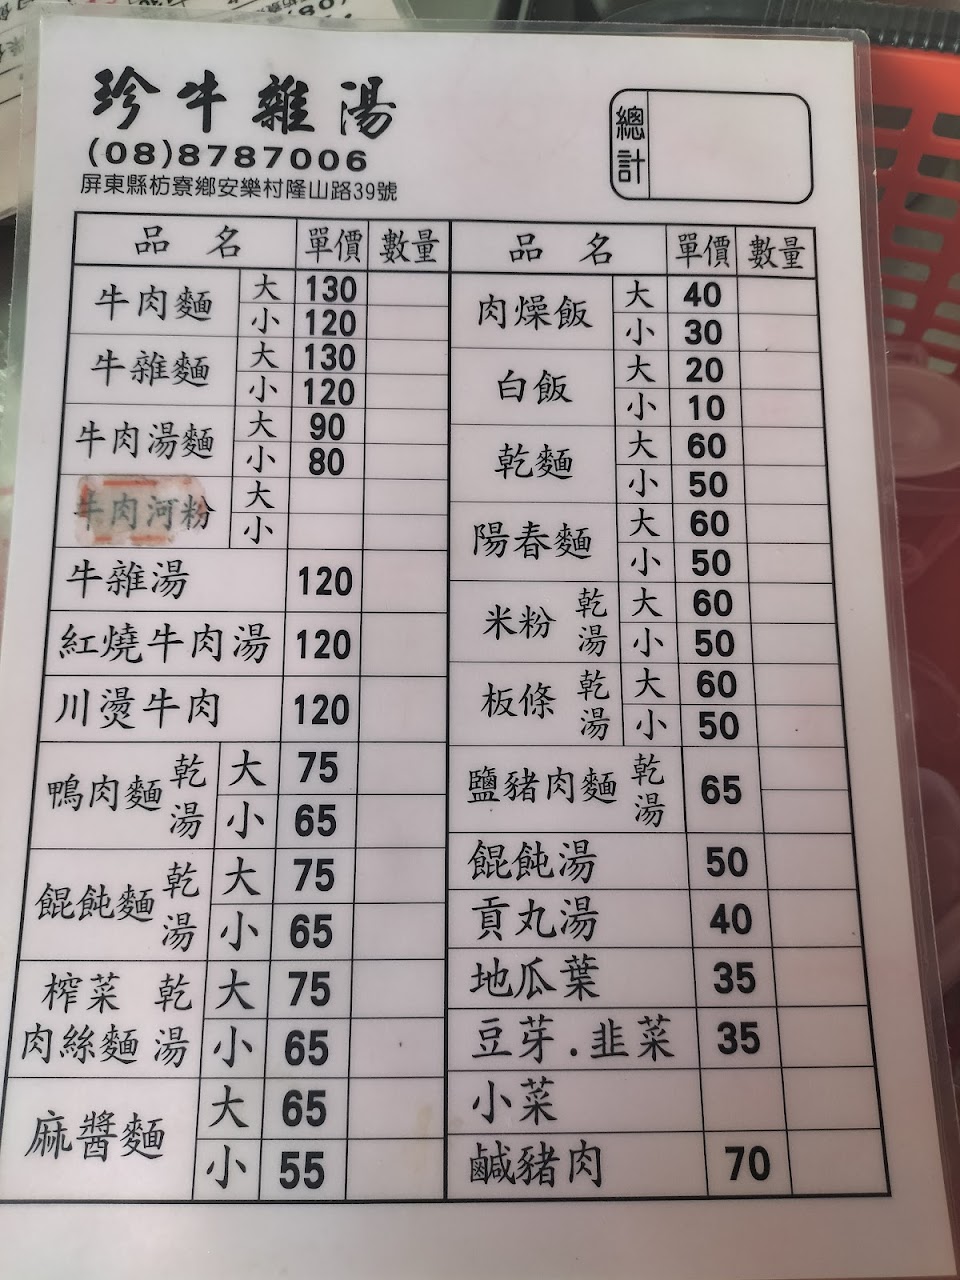 珍牛雜湯
(08)8787006
屏東縣枋寮鄉安樂村隆山路39號
總計
品名 單價 數量
牛肉麵 大 130
小 120
牛雜麵 大 130
小 120
牛肉湯麵 大 90
小 80
牛肉河粉 大
小
牛雜湯 120
紅燒牛肉湯 120
川燙牛肉 120
鴨肉麵 乾 大 75
湯 小 65
餛飩麵 乾 大 75
湯 小 65
榨菜 乾 大 75
肉絲麵 湯 小 65
麻醬麵 大 65
小 55
品名 單價 數量
肉燥飯 大 40
小 30
白飯 大 20
小 10
乾麵 大 60
小 50
陽春麵 大 60
小 50
米粉 乾 大 60
湯 小 50
板條 乾 大 60
湯 小 50
鹽豬肉麵 乾 湯 65
餛飩湯 50
貢丸湯 40
地瓜葉 35
豆芽.韭菜 35
小菜
鹹豬肉 70